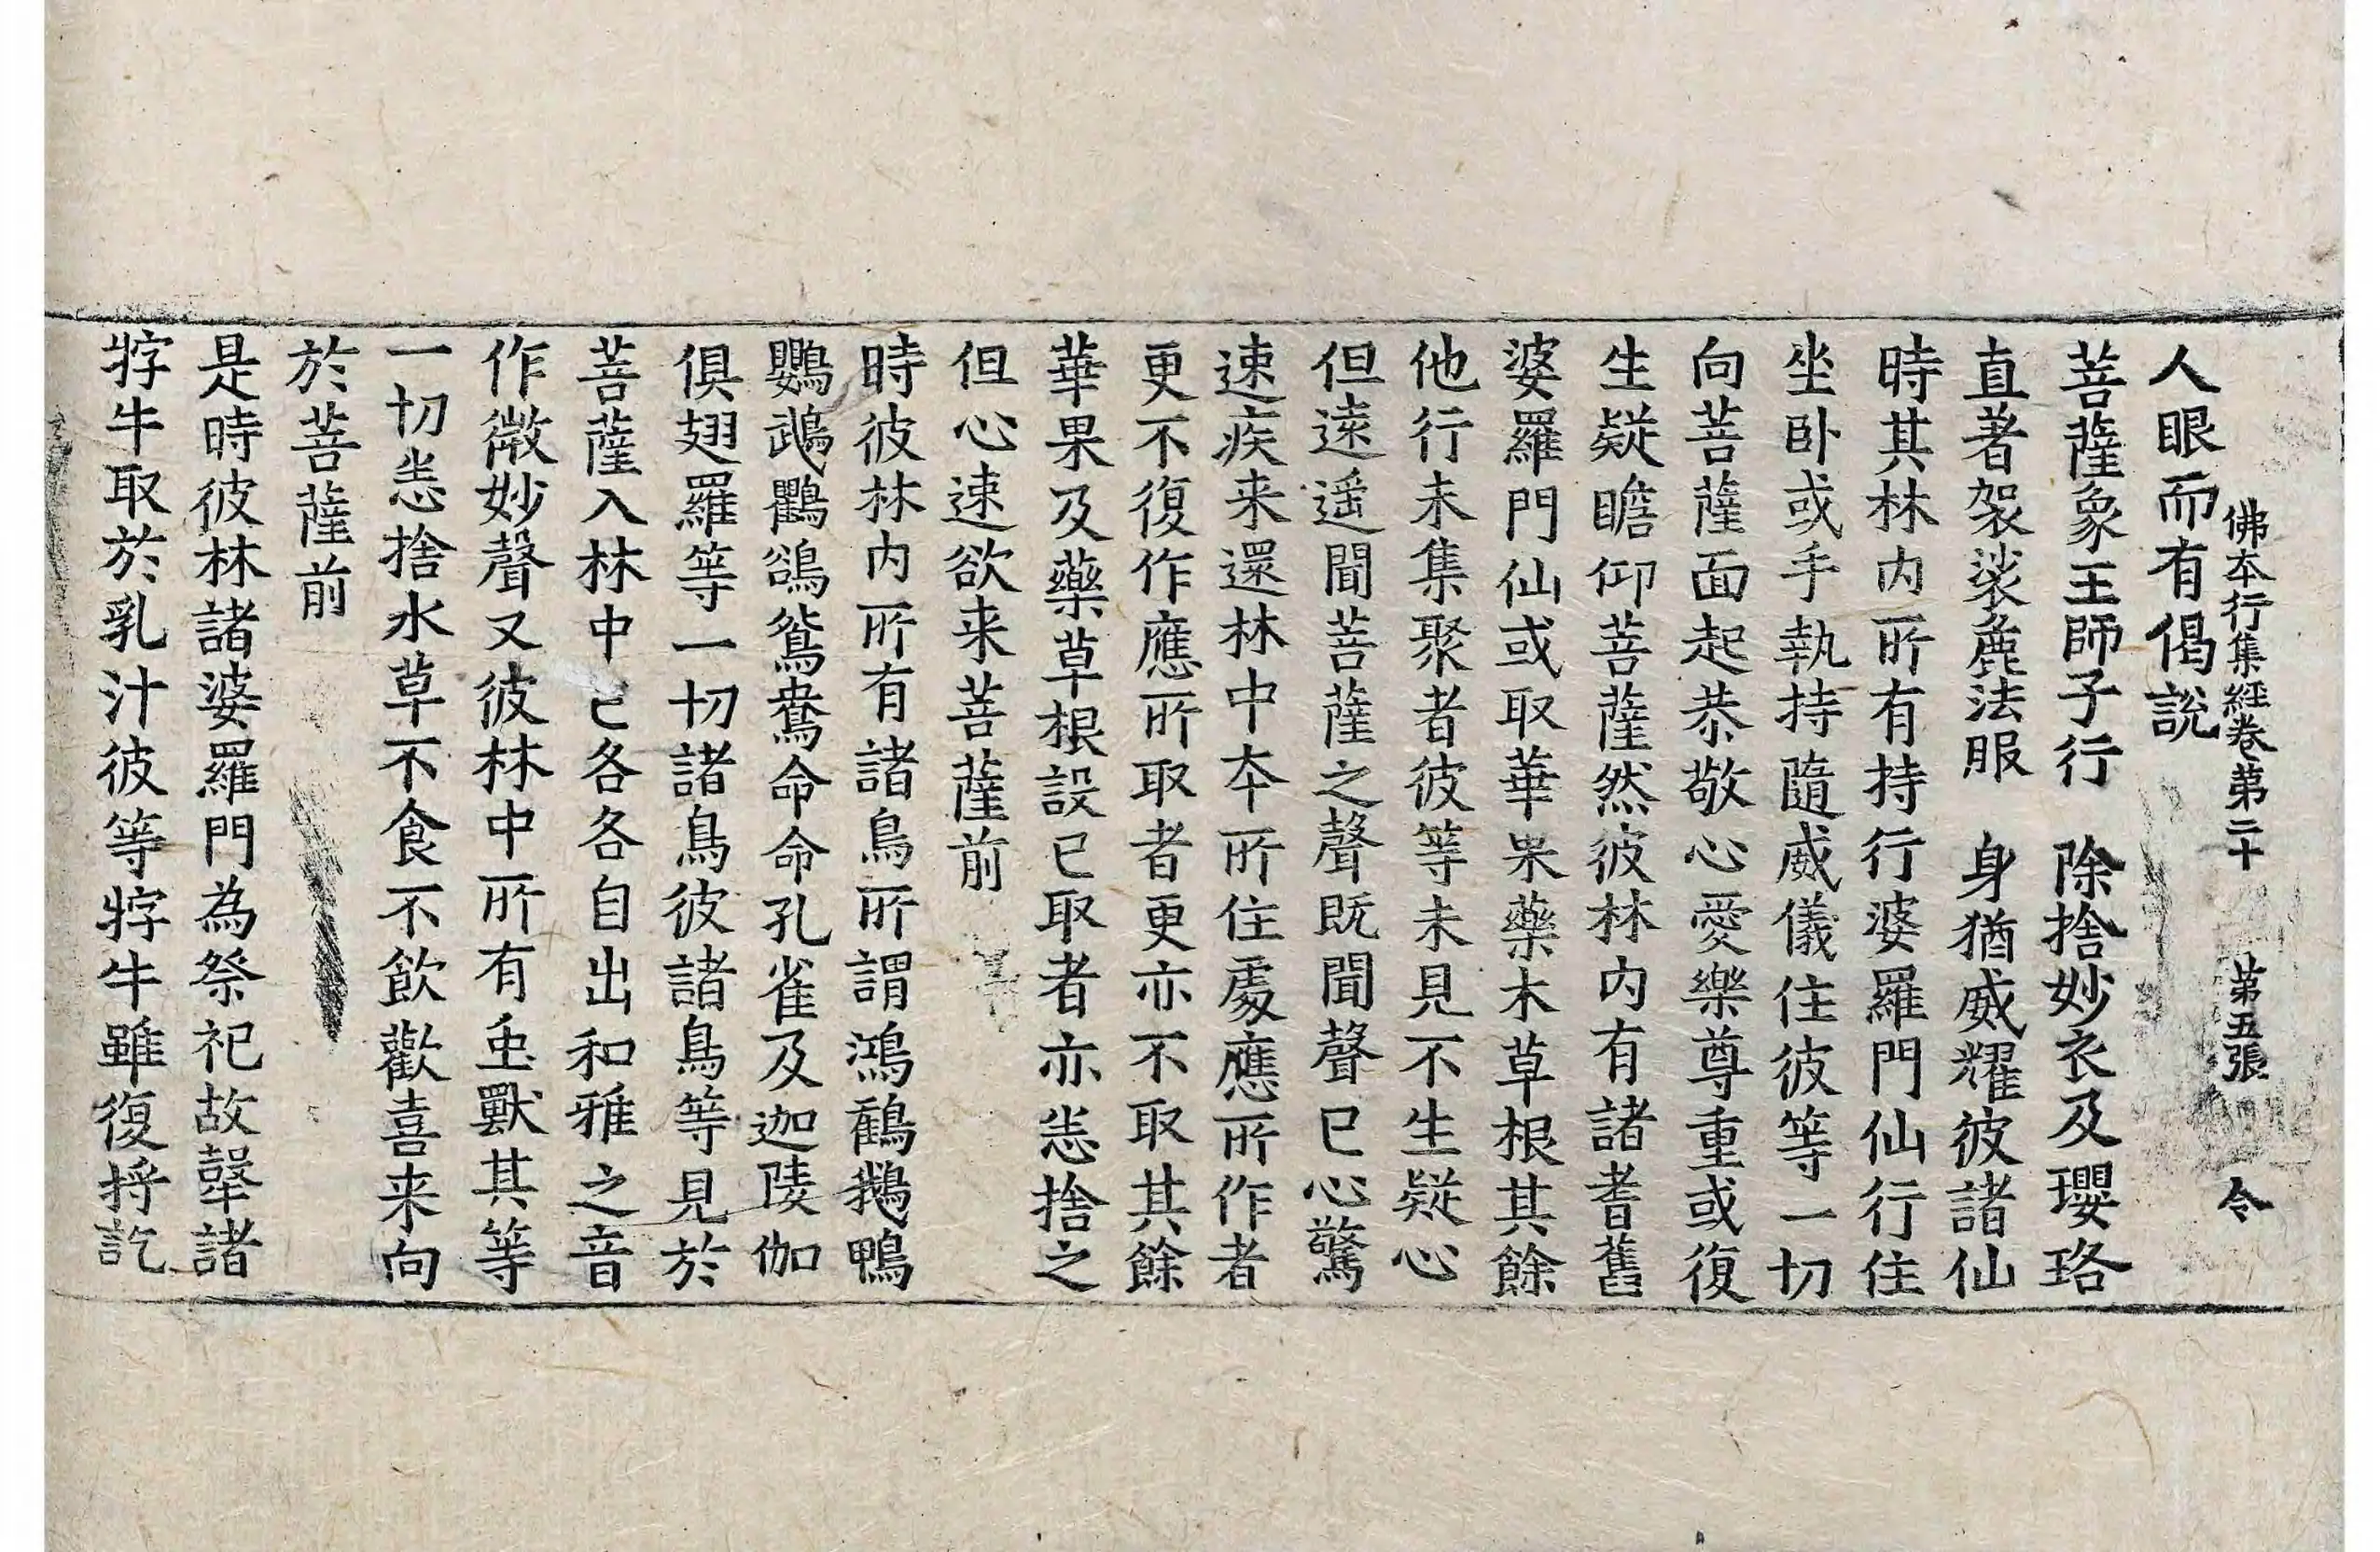 佛本行集經卷第二十 第五張 令
人眼而有偈說
菩薩象王師子行 除捨妙衣及瓔珞
直著袈裟麁法服 身猶威耀彼諸仙
時其林内所有持行婆羅門仙行住
坐卧或手執持隨威儀住彼等一切
向菩薩面起恭敬心愛樂尊重或復
生疑瞻仰菩薩然彼林内有諸耆舊
婆羅門仙或取華果藥木草根其餘
他行未集聚者彼等未見不生疑心
但遠遥聞菩薩之聲既聞聲已心驚
速疾来還林中本所住處應所作者
更不復作應所取者更亦不取其餘
華果及藥草根設已取者亦恙捨之
但心速欲来菩薩前
時彼林内所有諸鳥所謂鴻鶴鵝鴨
鸚鵡鸜鵒鴛鴦命命孔雀及迦陵伽
俱翅羅等一切諸鳥彼諸鳥等見於
菩薩入林中已各各自出和雅之音
作微妙聲又彼林中所有虫獸其等
一切恙捨水草不食不飲歡喜来向
於菩薩前
是時彼林諸婆羅門為祭祀故㹌諸
牸牛取於乳汁彼等牸牛雖復捋訖